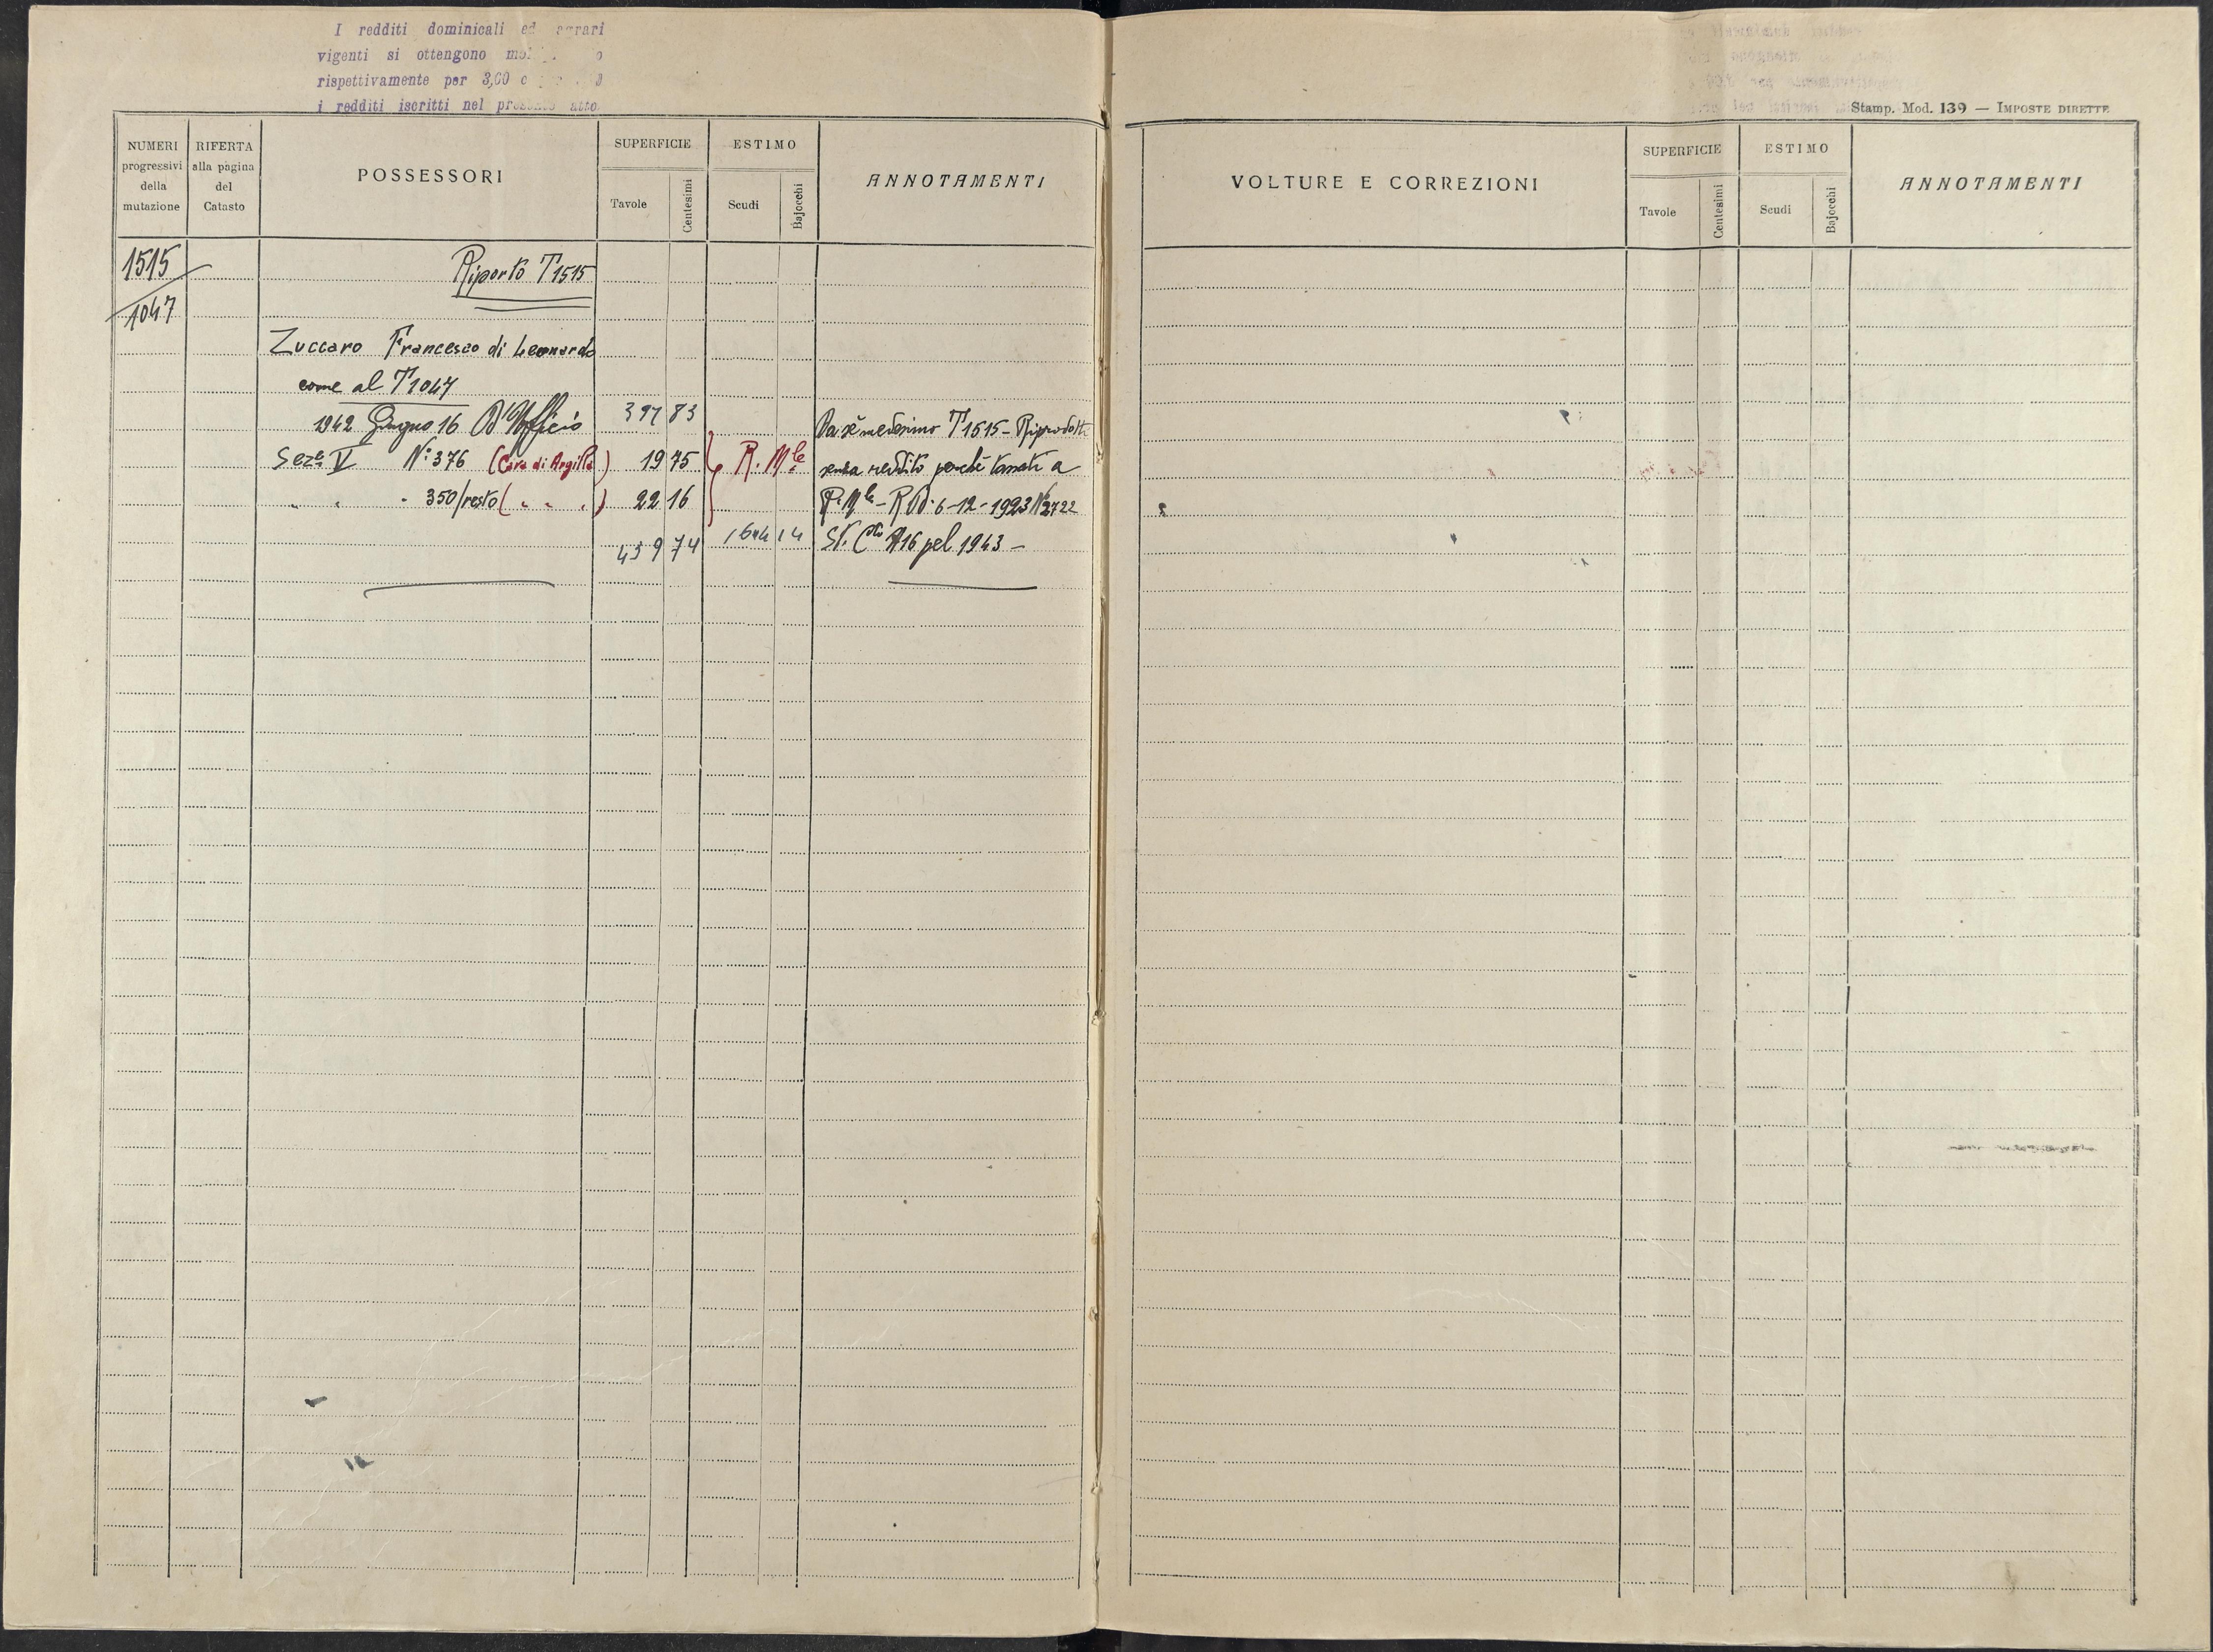 I redditi dominicali ed agrari
vigenti si ottengono
rispettivamente per 3,00 e
i redditi iscritti nel presente atto.
NUMERI progressivi della mutazione
RIFERTA alla pagina del Catasto
POSSESSORI
SUPERFICIE
Tavole
Centesimi
ESTIMO
Scudi
Bajocchi
ANNOTAMENTI
1515
Riporto T1515
1047
Zuccaro Francesco di Leonardo
come al T1047
1942 Giugno 16 D'Ufficio 397 83 Da sè medesimo T1515 - Riprodotti
Seze V N: 376 (Cava di Argilla) 19 75 R. Mle senza reddito perchè tassati a
" " " 350/resto ( " " " ) 22 16 R. Mle - R.D. 6-12-1923 N 2722
439 74 1644 14 St. Cto A16 pel 1943 -
Stamp. Mod. 139 — IMPOSTE DIRETTE
VOLTURE E CORREZIONI
SUPERFICIE
Tavole
Centesimi
ESTIMO
Scudi
Bajocchi
ANNOTAMENTI